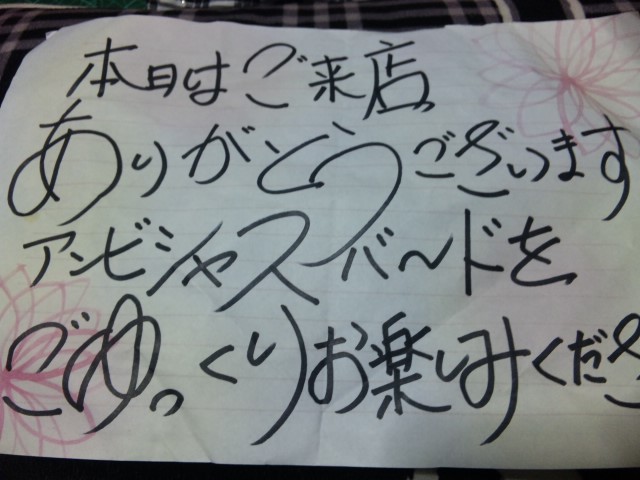 本日はご来店
ありがとうございます
アンビシャスバードを
ごゆっくりお楽しみくださ